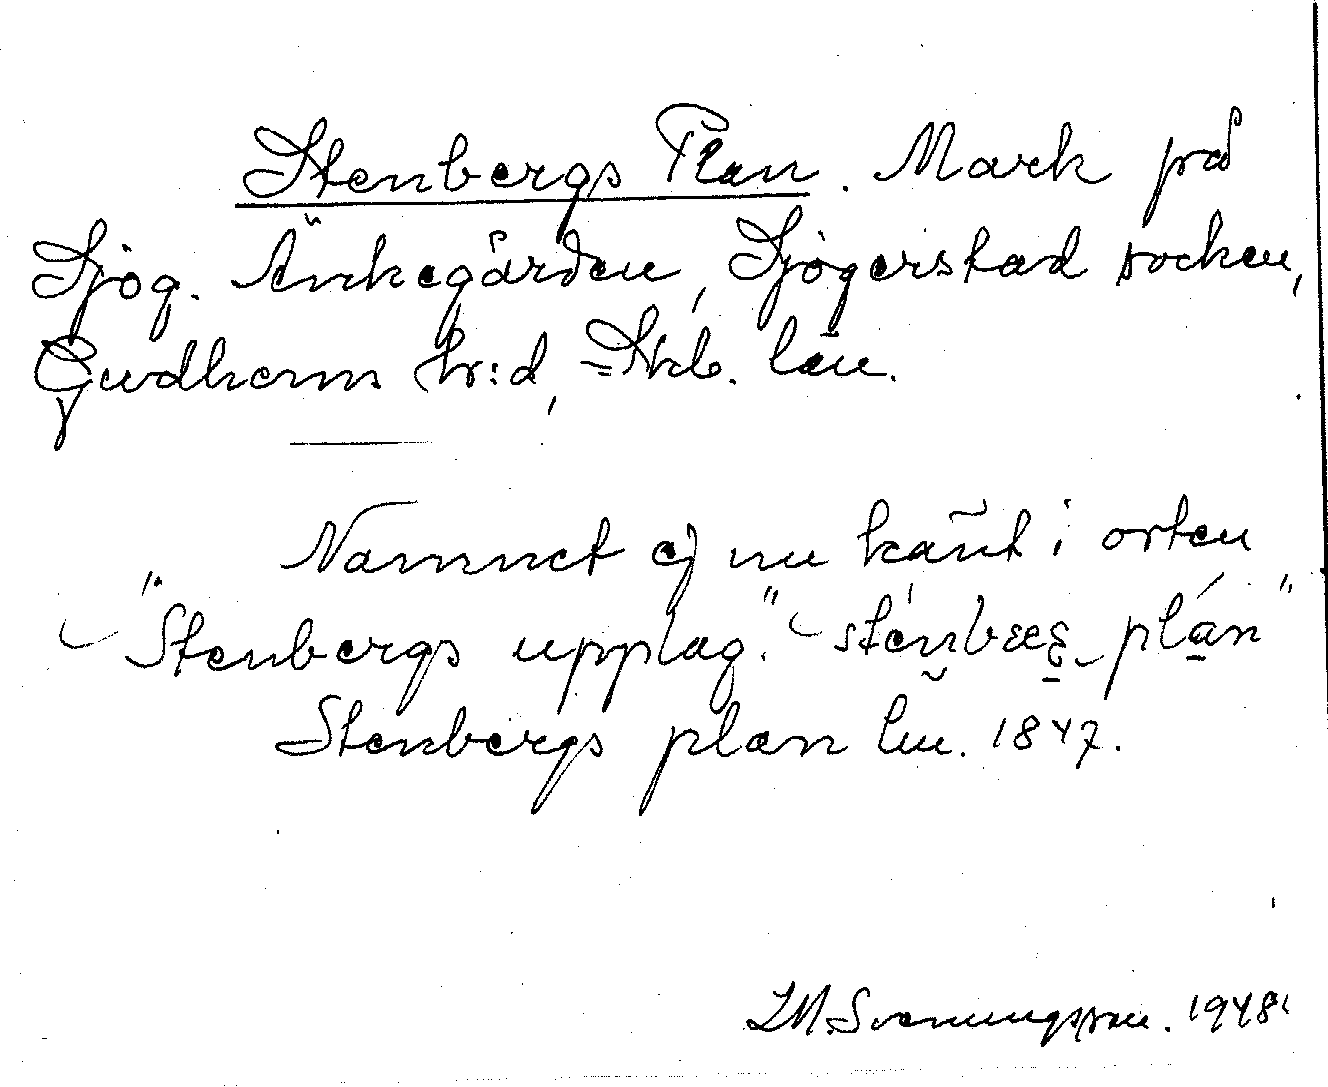 Stenbergs Plan. Mark på
Sjög. Änkegården, Sjögerstad socken,
Gudhems hr:d, Skb. län.
Namnet ej nu känt i orten
"Stenbergs upplag."
Stenbergs plan lm. 1847.
Svenungsson. 1948.